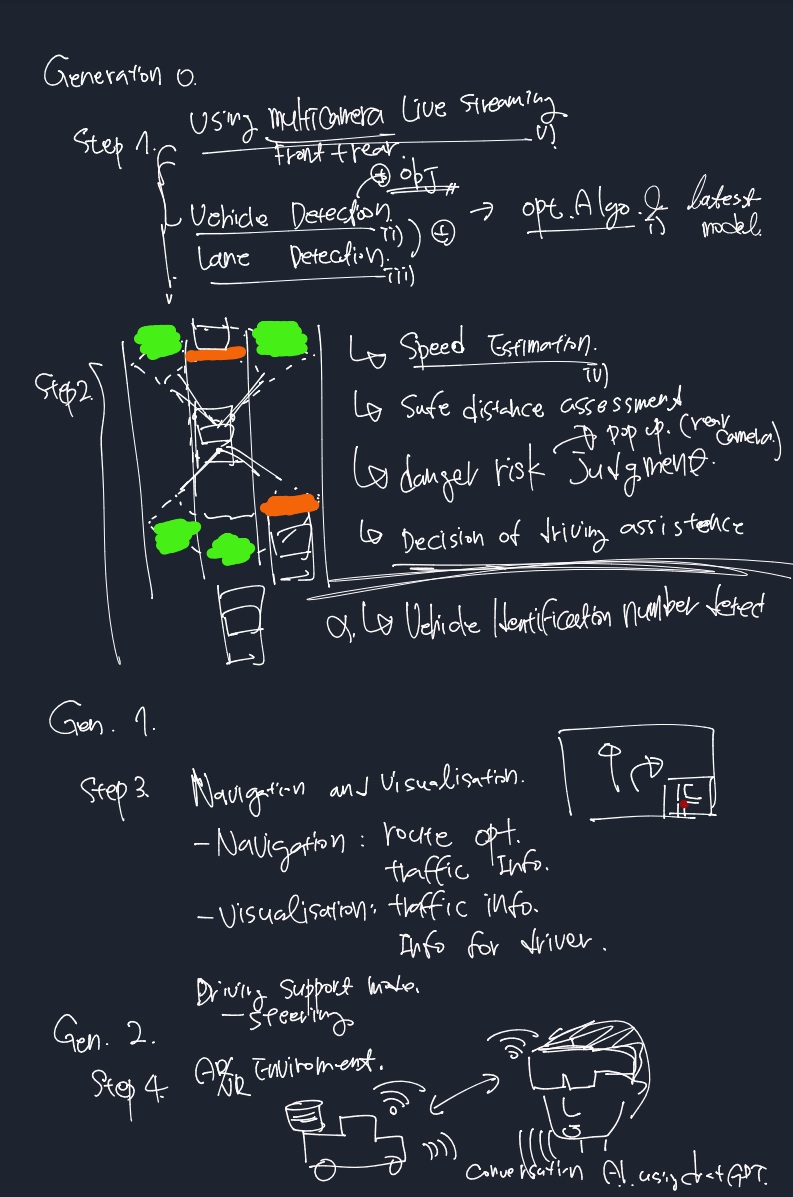 Generation 0.
Step 1.
Using multicamera Live Streaming i)
front + rear
+ obj
Vehicle Detection. ii)
Lane Detection. iii)
+ → opt. Algo. & latest model.
i)
Step 2
↳ Speed Estimation. iv)
↳ Safe distance assessment
→ pop up. (rear camera.)
↳ danger risk Judgment.
↳ Decision of driving assistence
α. ↳ Vehicle Identification number detect
Gen. 1.
Step 3. Navigation and Visualisation.
- Navigation : route opt.
traffic Info.
- Visualisation : traffic info.
Info for driver.
Driving support mode.
- steering
Gen. 2.
Step 4. AR/VR Enviroment.
Conversation AI. using chatGPT.